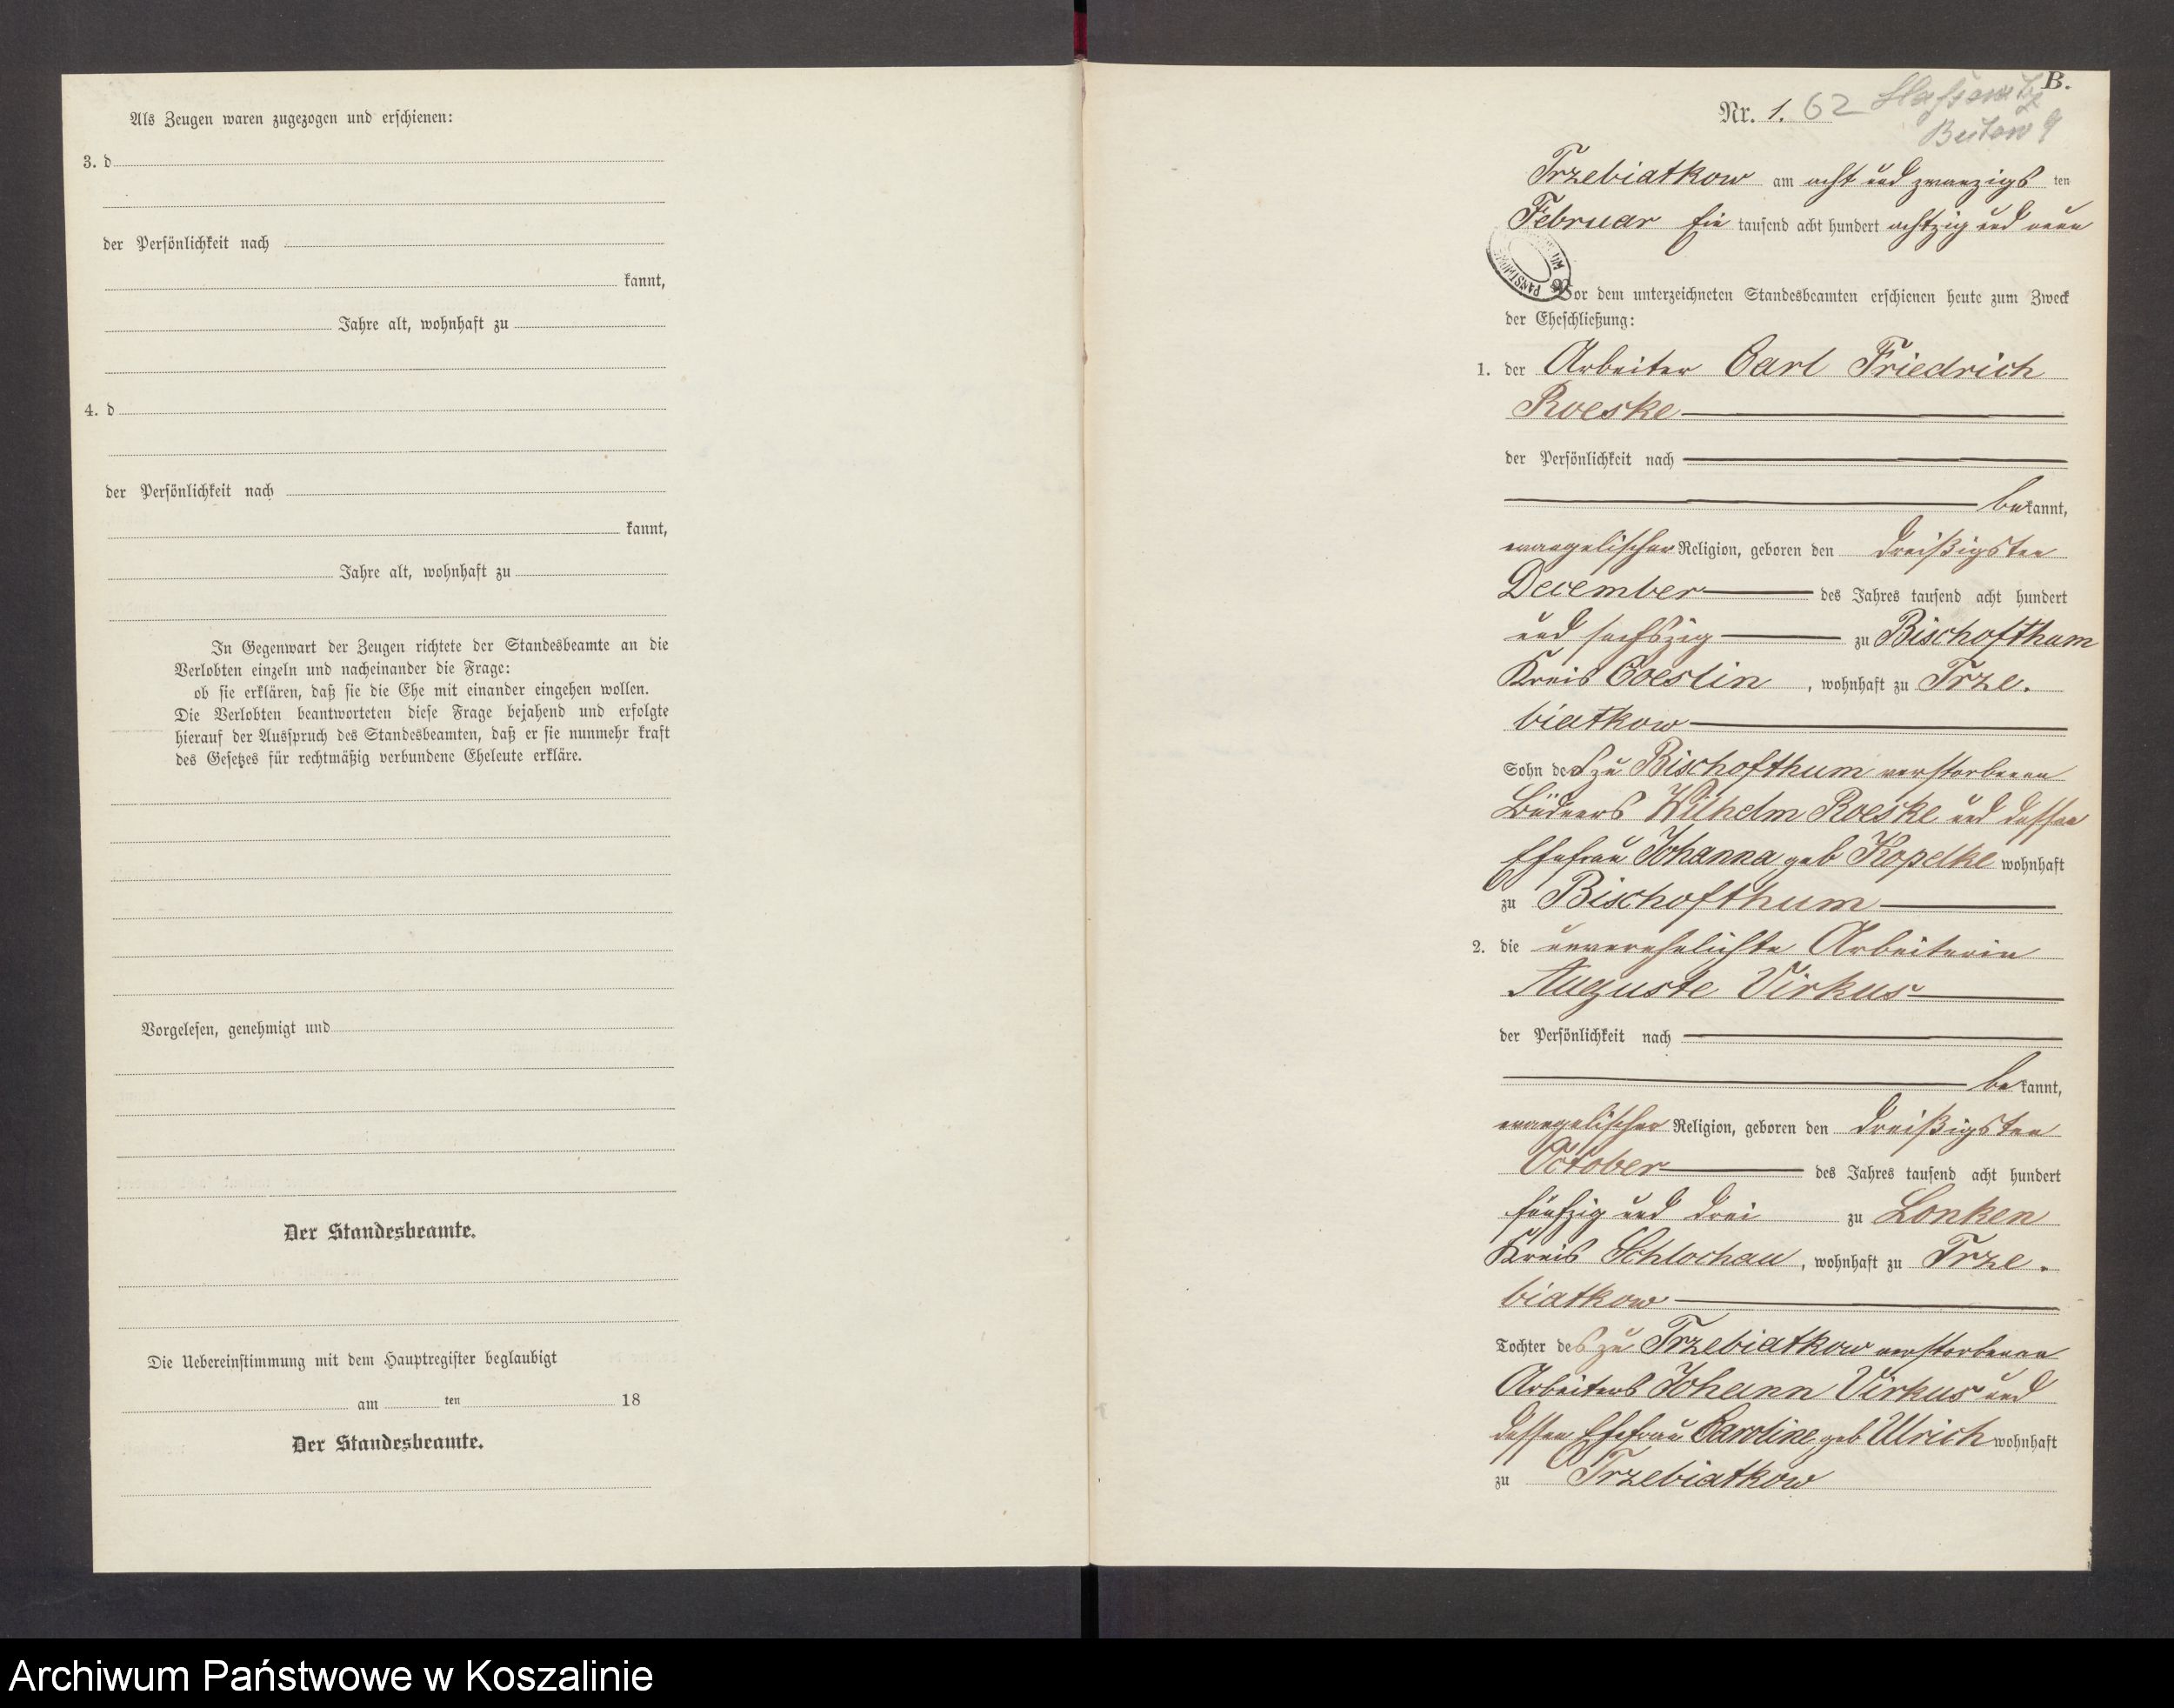 Als Zeugen waren zugezogen und erschienen:
3. d
der Persönlichkeit nach
kannt,
Jahre alt, wohnhaft zu
4. d
der Persönlichkeit nach
kannt,
Jahre alt, wohnhaft zu
In Gegenwart der Zeugen richtete der Standesbeamte an die
Verlobten einzeln und nacheinander die Frage:
ob sie erklären, daß sie die Ehe mit einander eingehen wollen.
Die Verlobten beantworteten diese Frage bejahend und erfolgte
hierauf der Ausspruch des Standesbeamten, daß er sie nunmehr kraft
des Gesetzes für rechtmäßig verbundene Eheleute erkläre.
Vorgelesen, genehmigt und
Der Standesbeamte.
Die Uebereinstimmung mit dem Hauptregister beglaubigt
am ten 18
Der Standesbeamte.
B.
Nr. 1. 62
Bütow 9
Trzebiatkow am acht und zwanzigsten
Februar Ein tausend acht hundert achtzig und neun
Vor dem unterzeichneten Standesbeamten erschienen heute zum Zweck
der Eheschließung:
1. der Arbeiter Carl Friedrich
Roeske
der Persönlichkeit nach
bekannt,
evangelischer Religion, geboren den dreißigsten
December des Jahres tausend acht hundert
und sechszig zu Bischofthum
Kreis Coeslin, wohnhaft zu Trze-
biatkow
Sohn des zu Bischofthum verstorbenen
Büdners Wilhelm Roeske und dessen
Ehefrau Johanna geb Kopelke wohnhaft
zu Bischofthum
2. die unverehelichte Arbeiterin
Auguste Virkus
der Persönlichkeit nach
bekannt,
evangelischer Religion, geboren den dreißigsten
October des Jahres tausend acht hundert
fünfzig und drei zu Lonken
Kreis Schlochau, wohnhaft zu Trze-
biatkow
Tochter des zu Trzebiatkow verstorbenen
Arbeiters Johann Virkus und
dessen Ehefrau Caroline geb Ulrich wohnhaft
zu Trzebiatkow
Archiwum Państwowe w Koszalinie